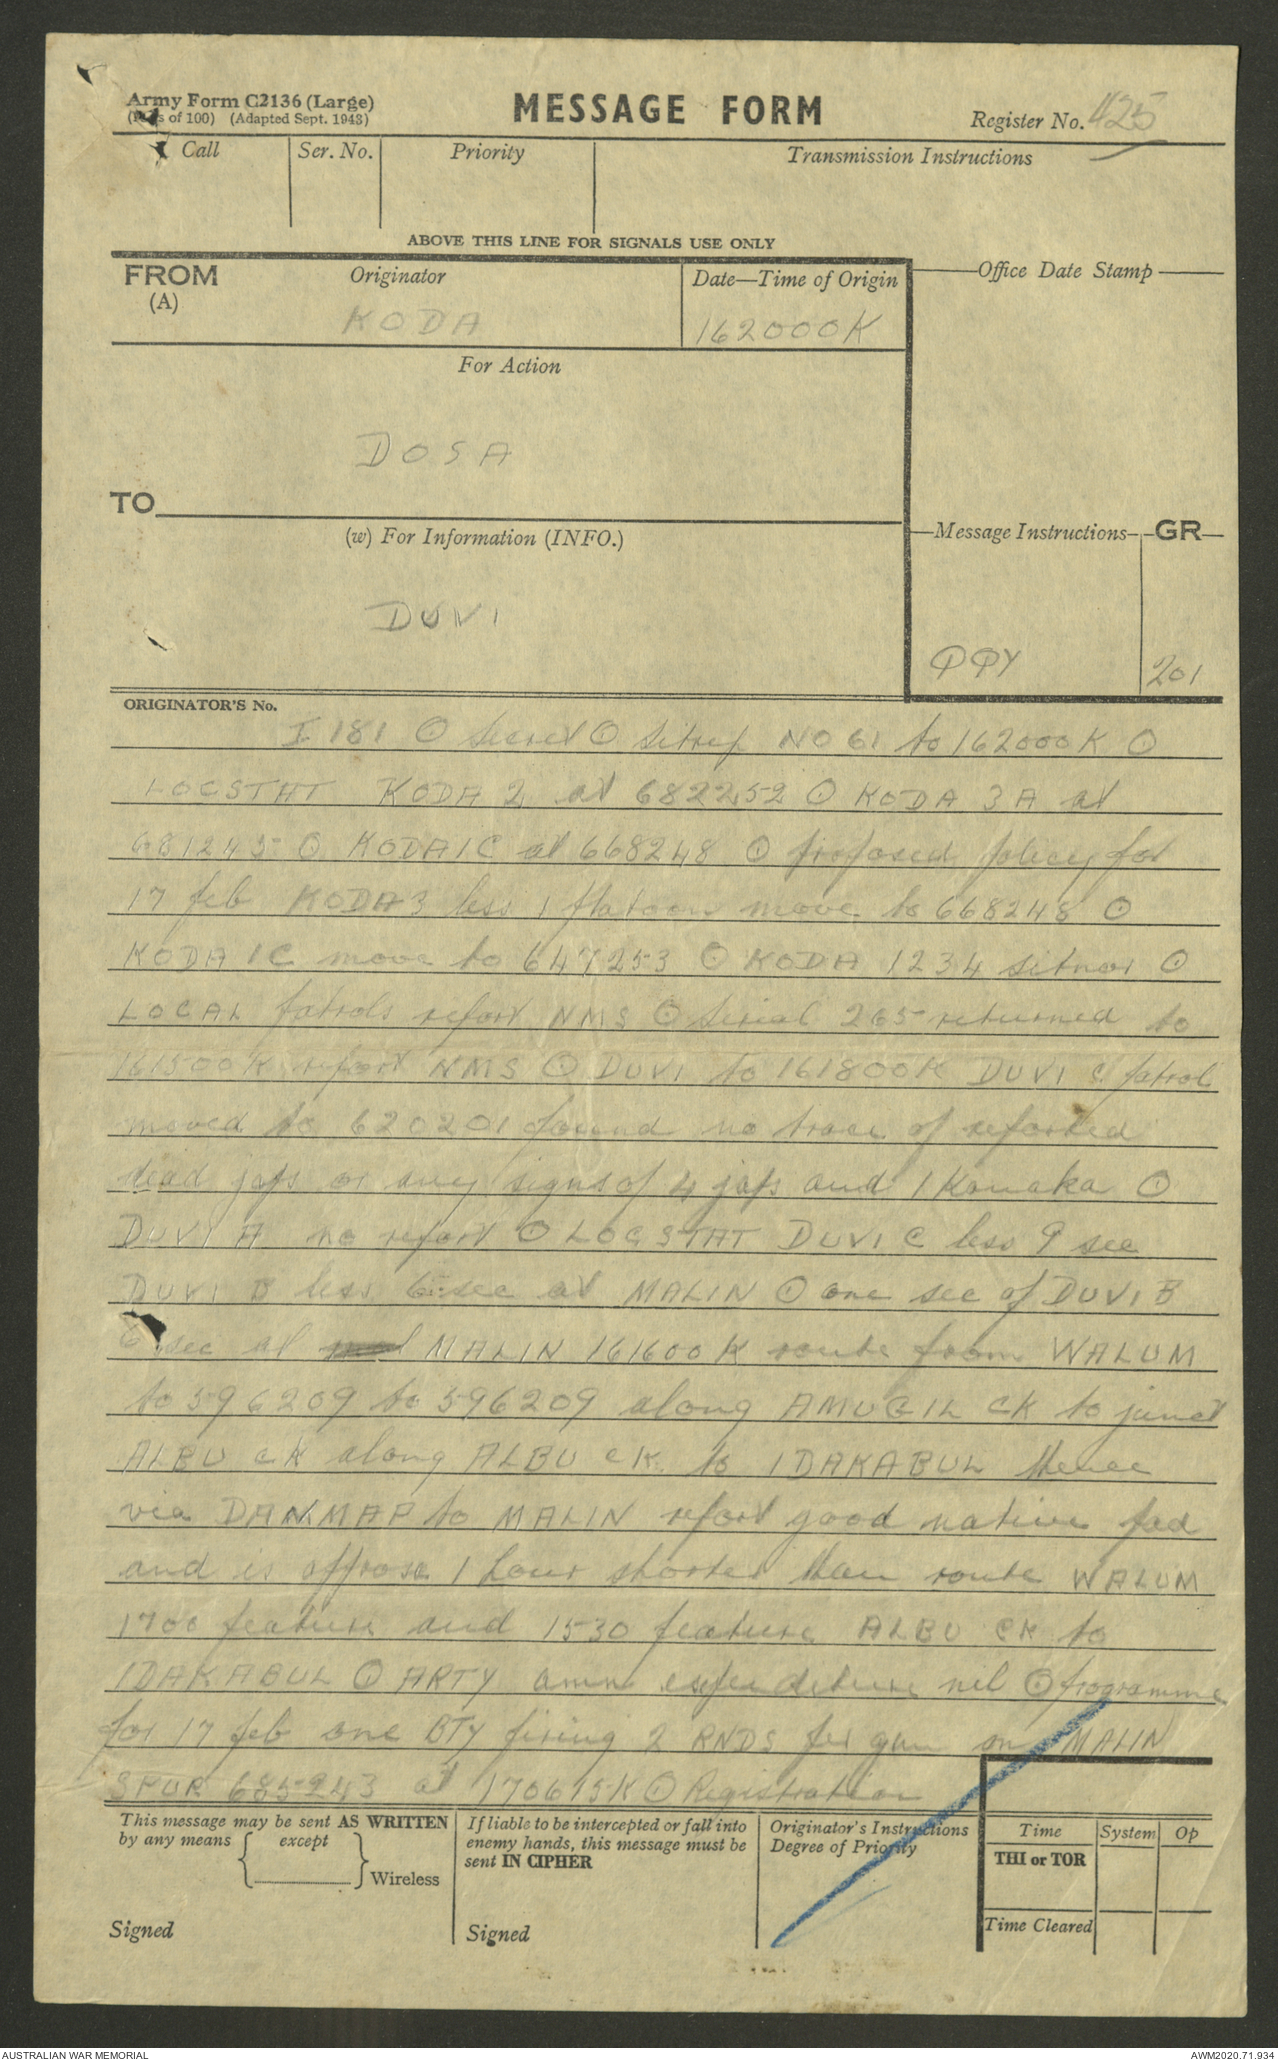 Army Form C2136 (Large)
(Pads of 100) (Adapted Sept. 1943)
MESSAGE FORM
Register No. 425
Call
Ser. No.
Priority
Transmission Instructions
ABOVE THIS LINE FOR SIGNALS USE ONLY
FROM
(A)
Originator
KODA
Date—Time of Origin
162000K
Office Date Stamp
For Action
DOSA
TO
(w) For Information (INFO.)
DUVI
Message Instructions
GR
QQY
201
ORIGINATOR'S No.
I 181 ⊙ Secret ⊙ Sitrep NO 61 to 162000K ⊙
LOCSTAT KODA 2 at 682252 ⊙ KODA 3A at
681245 ⊙ KODA1C at 668248 ⊙ proposed policy for
17 feb KODA3 less 1 platoon move to 668248 ⊙
KODA 1C move to 647253 ⊙ KODA 1234 sitnor ⊙
LOCAL patrols report NMS ⊙ Serial 265 returned to
161500K report NMS ⊙ DUVI to 161800K DUVI C patrol
moved to 620201 found no trace of reported
dead japs or any signs of 4 japs and 1 Kanaka ⊙
DUVI A no report ⊙ LOCSTAT DUVI C less 9 sec
DUVI B less 6 sec at MALIN ⊙ one sec of DUVI B
6 sec at MALIN 161600K route from WALUM
to 596209 to 596209 along AMUGIL CK to junct
ALBU CK along ALBU CK to IDAKABUL thence
via DANMAP to MALIN report good native pad
and is approx 1 hour shorter than route WALUM
1700 feature and 1530 feature ALBU CK to
IDAKABUL ⊙ ARTY amm expenditure nil ⊙ programme
for 17 feb one BTY firing 2 RNDS per gun on MALIN
SPUR 685243 at 170615K ⊙ Registration
This message may be sent AS WRITTEN
by any means { except } Wireless
Signed
If liable to be intercepted or fall into
enemy hands, this message must be
sent IN CIPHER
Signed
Originator's Instructions
Degree of Priority
Time
System
Op
THI or TOR
Time Cleared
AUSTRALIAN WAR MEMORIAL
AWM2020.71.934